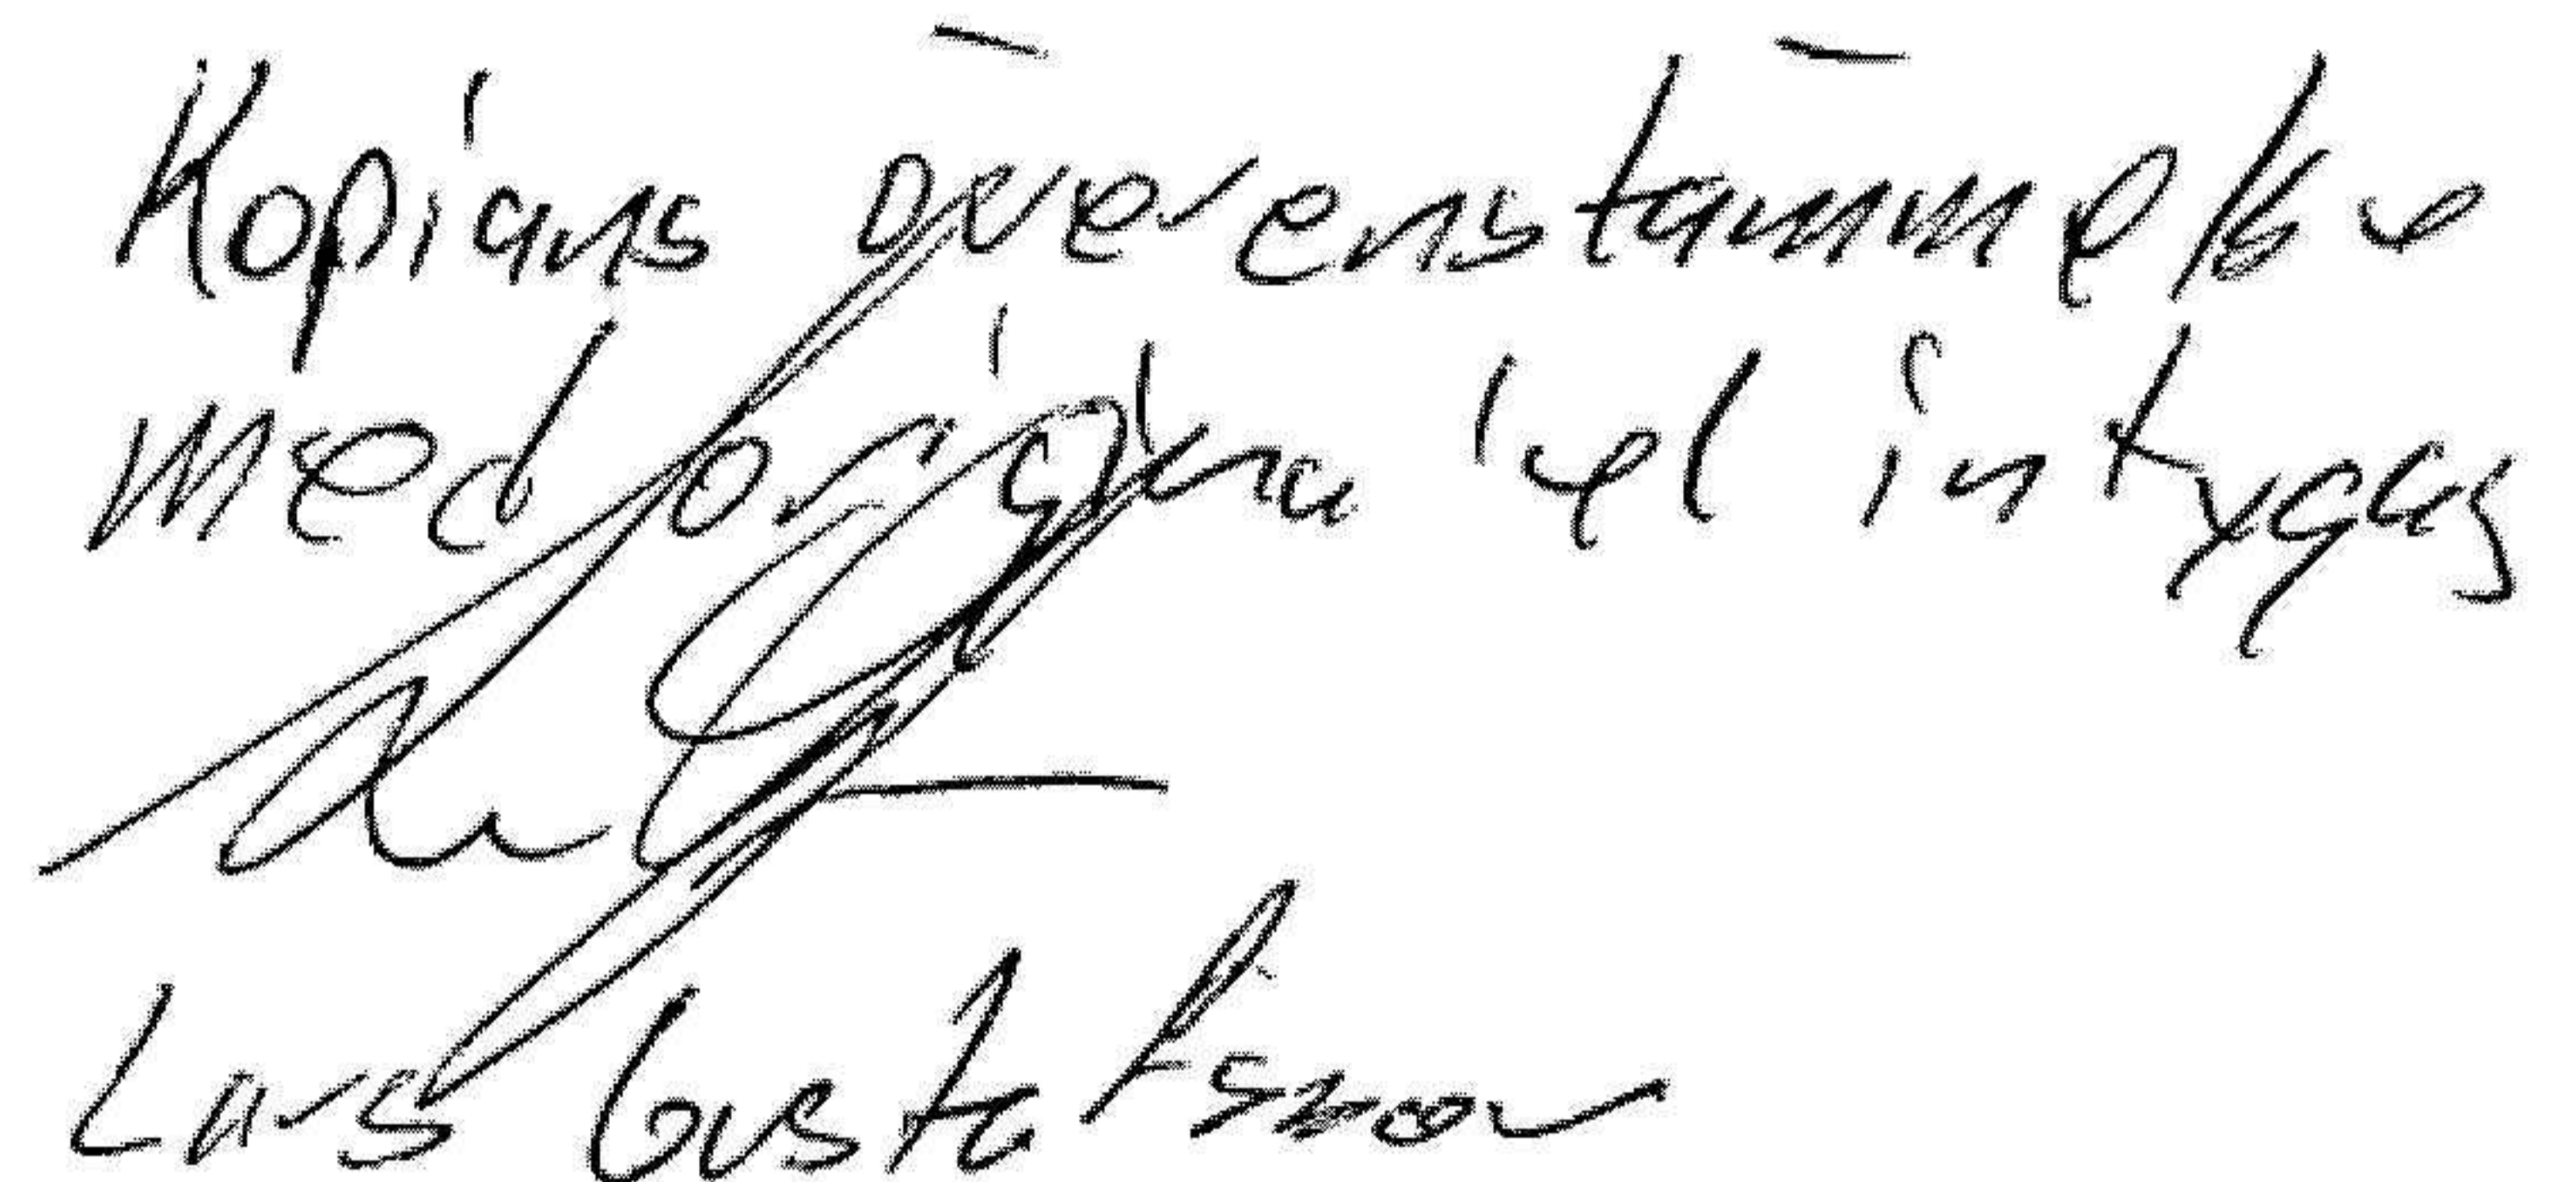 Kopians överenstämmelse
med originalet intygas
Lars Gustafsson